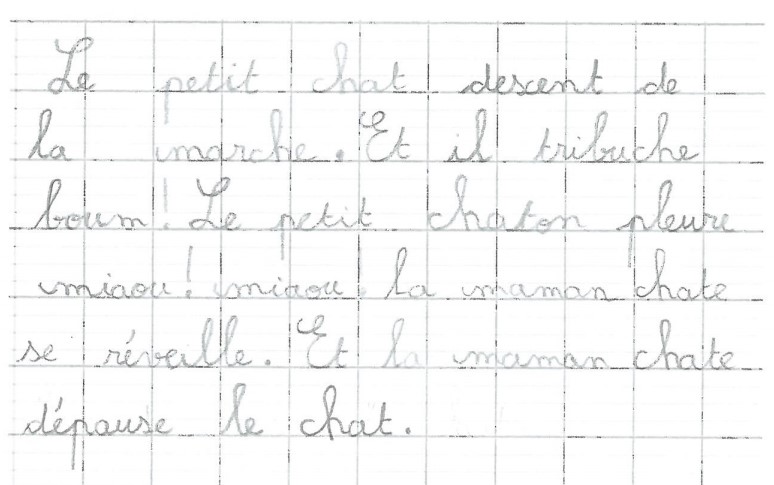 Le petit chat descent de
la marche. Et il tribuche
boum! Le petit chaton pleure
miaou! miaou! la maman chate
se réveille. Et la maman chate
dépause le chat.